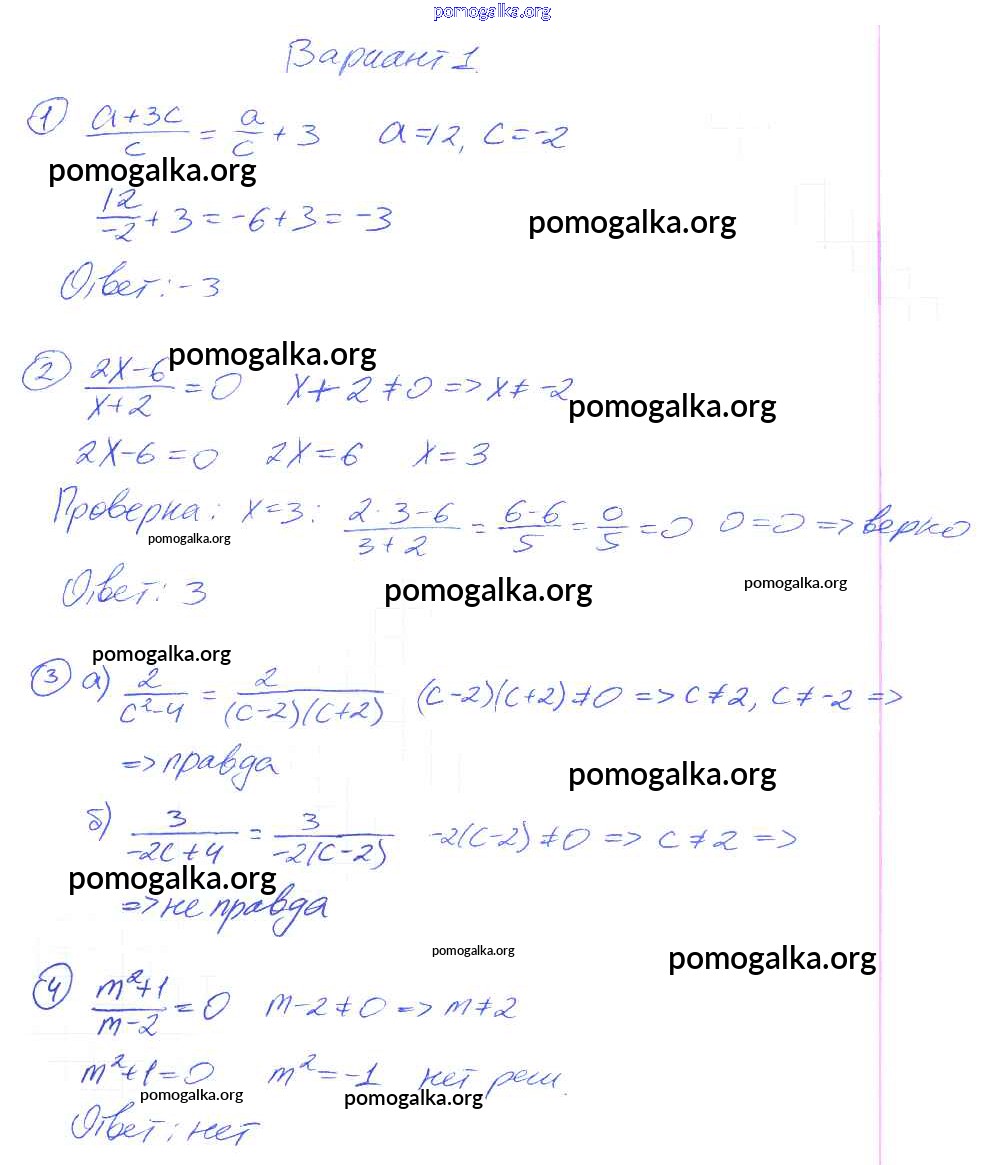 pomogalka.org
Вариант 1.
① (a+3c)/c = a/c + 3 a=12, c=-2
pomogalka.org
12/-2 + 3 = -6+3 = -3
pomogalka.org
Ответ: -3
pomogalka.org
② (2x-6)/(x+2) = 0 x+2≠0 => x≠-2
pomogalka.org
2x-6=0 2x=6 x=3
Проверка: x=3: (2·3-6)/(3+2) = (6-6)/5 = 0/5 = 0 0=0 => верно
pomogalka.org
Ответ: 3
pomogalka.org
pomogalka.org
pomogalka.org
③ а) 2/(c²-4) = 2/((c-2)(c+2)) (c-2)(c+2)≠0 => c≠2, c≠-2 =>
=> правда
pomogalka.org
б) 3/(-2c+4) = 3/(-2(c-2)) -2(c-2)≠0 => c≠2 =>
pomogalka.org
=> не правда
pomogalka.org
pomogalka.org
④ (m²+1)/(m-2) = 0 m-2≠0 => m≠2
m²+1=0 m²=-1 нет реш.
pomogalka.org
pomogalka.org
Ответ: нет